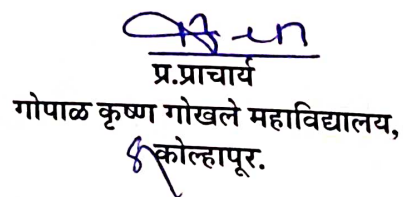 प्र.प्राचार्य
गोपाळ कृष्ण गोखले महाविद्यालय,
कोल्हापूर.